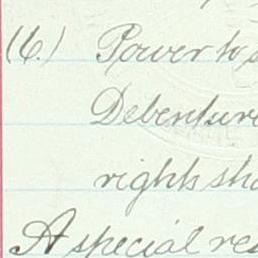 (6.) Power to
Debenture
rights sha
A special res